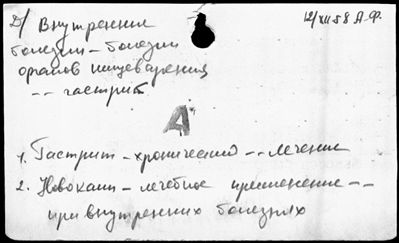 Д/ Внутренние
болезни - болезни
органов пищеварения
-- гастрит
12/XII 58 А.Ф.
А
1. Гастрит - хронический -- лечение
2. Новокаин - лечебное применение --
при внутренних болезнях